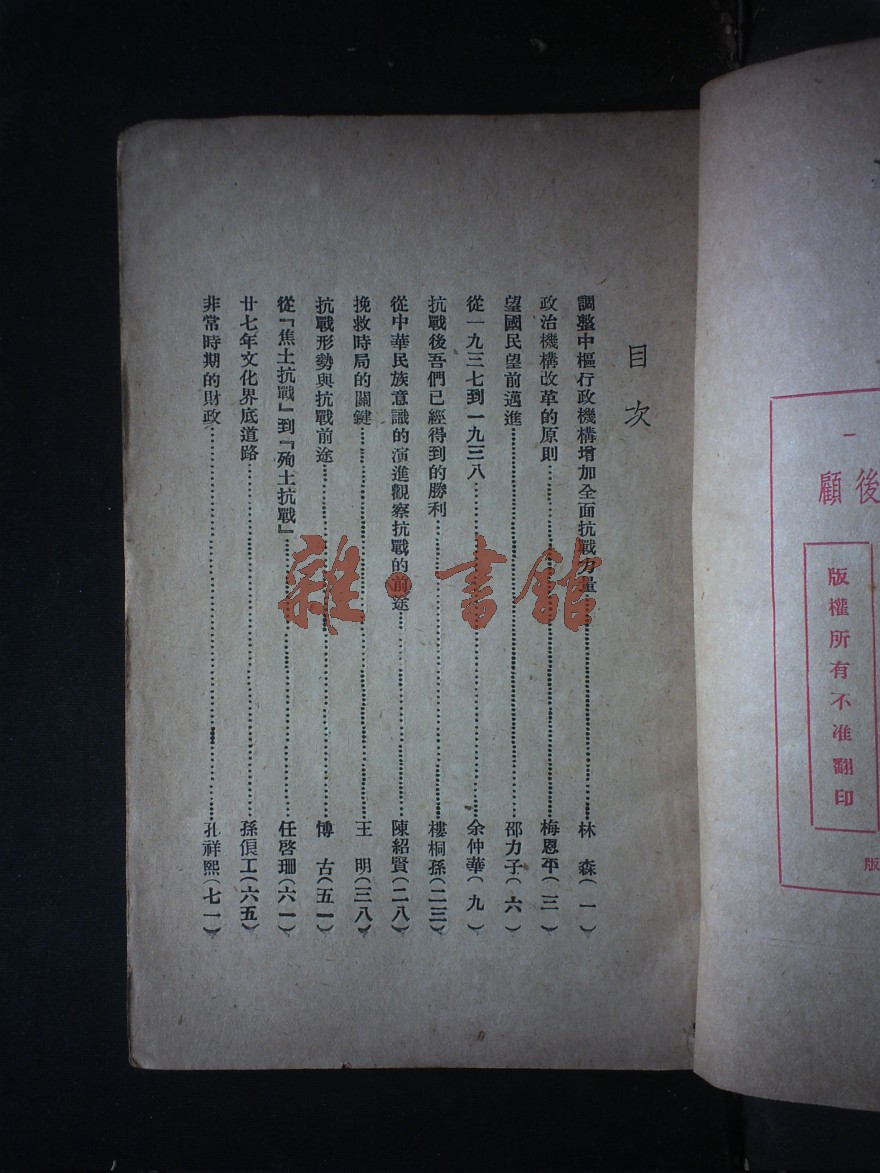 目次
調整中樞行政機構增加全面抗戰力量……林 森(一)
政治機構改革的原則……梅恩平(三)
望國民望前邁進……邵力子(六)
從一九三七到一九三八……余仲華(九)
抗戰後吾們已經得到的勝利……樓桐孫(二三)
從中華民族意識的演進觀察抗戰的前途……陳紹賢(二八)
挽救時局的關鍵……王 明(三八)
抗戰形勢與抗戰前途……博 古(五一)
從『焦土抗戰』到『殉土抗戰』……任啓珊(六一)
廿七年文化界底道路……孫俍工(六五)
非常時期的財政……孔祥熙(七一)
雜·書館
一
後
顧
版權所有不准翻印
版